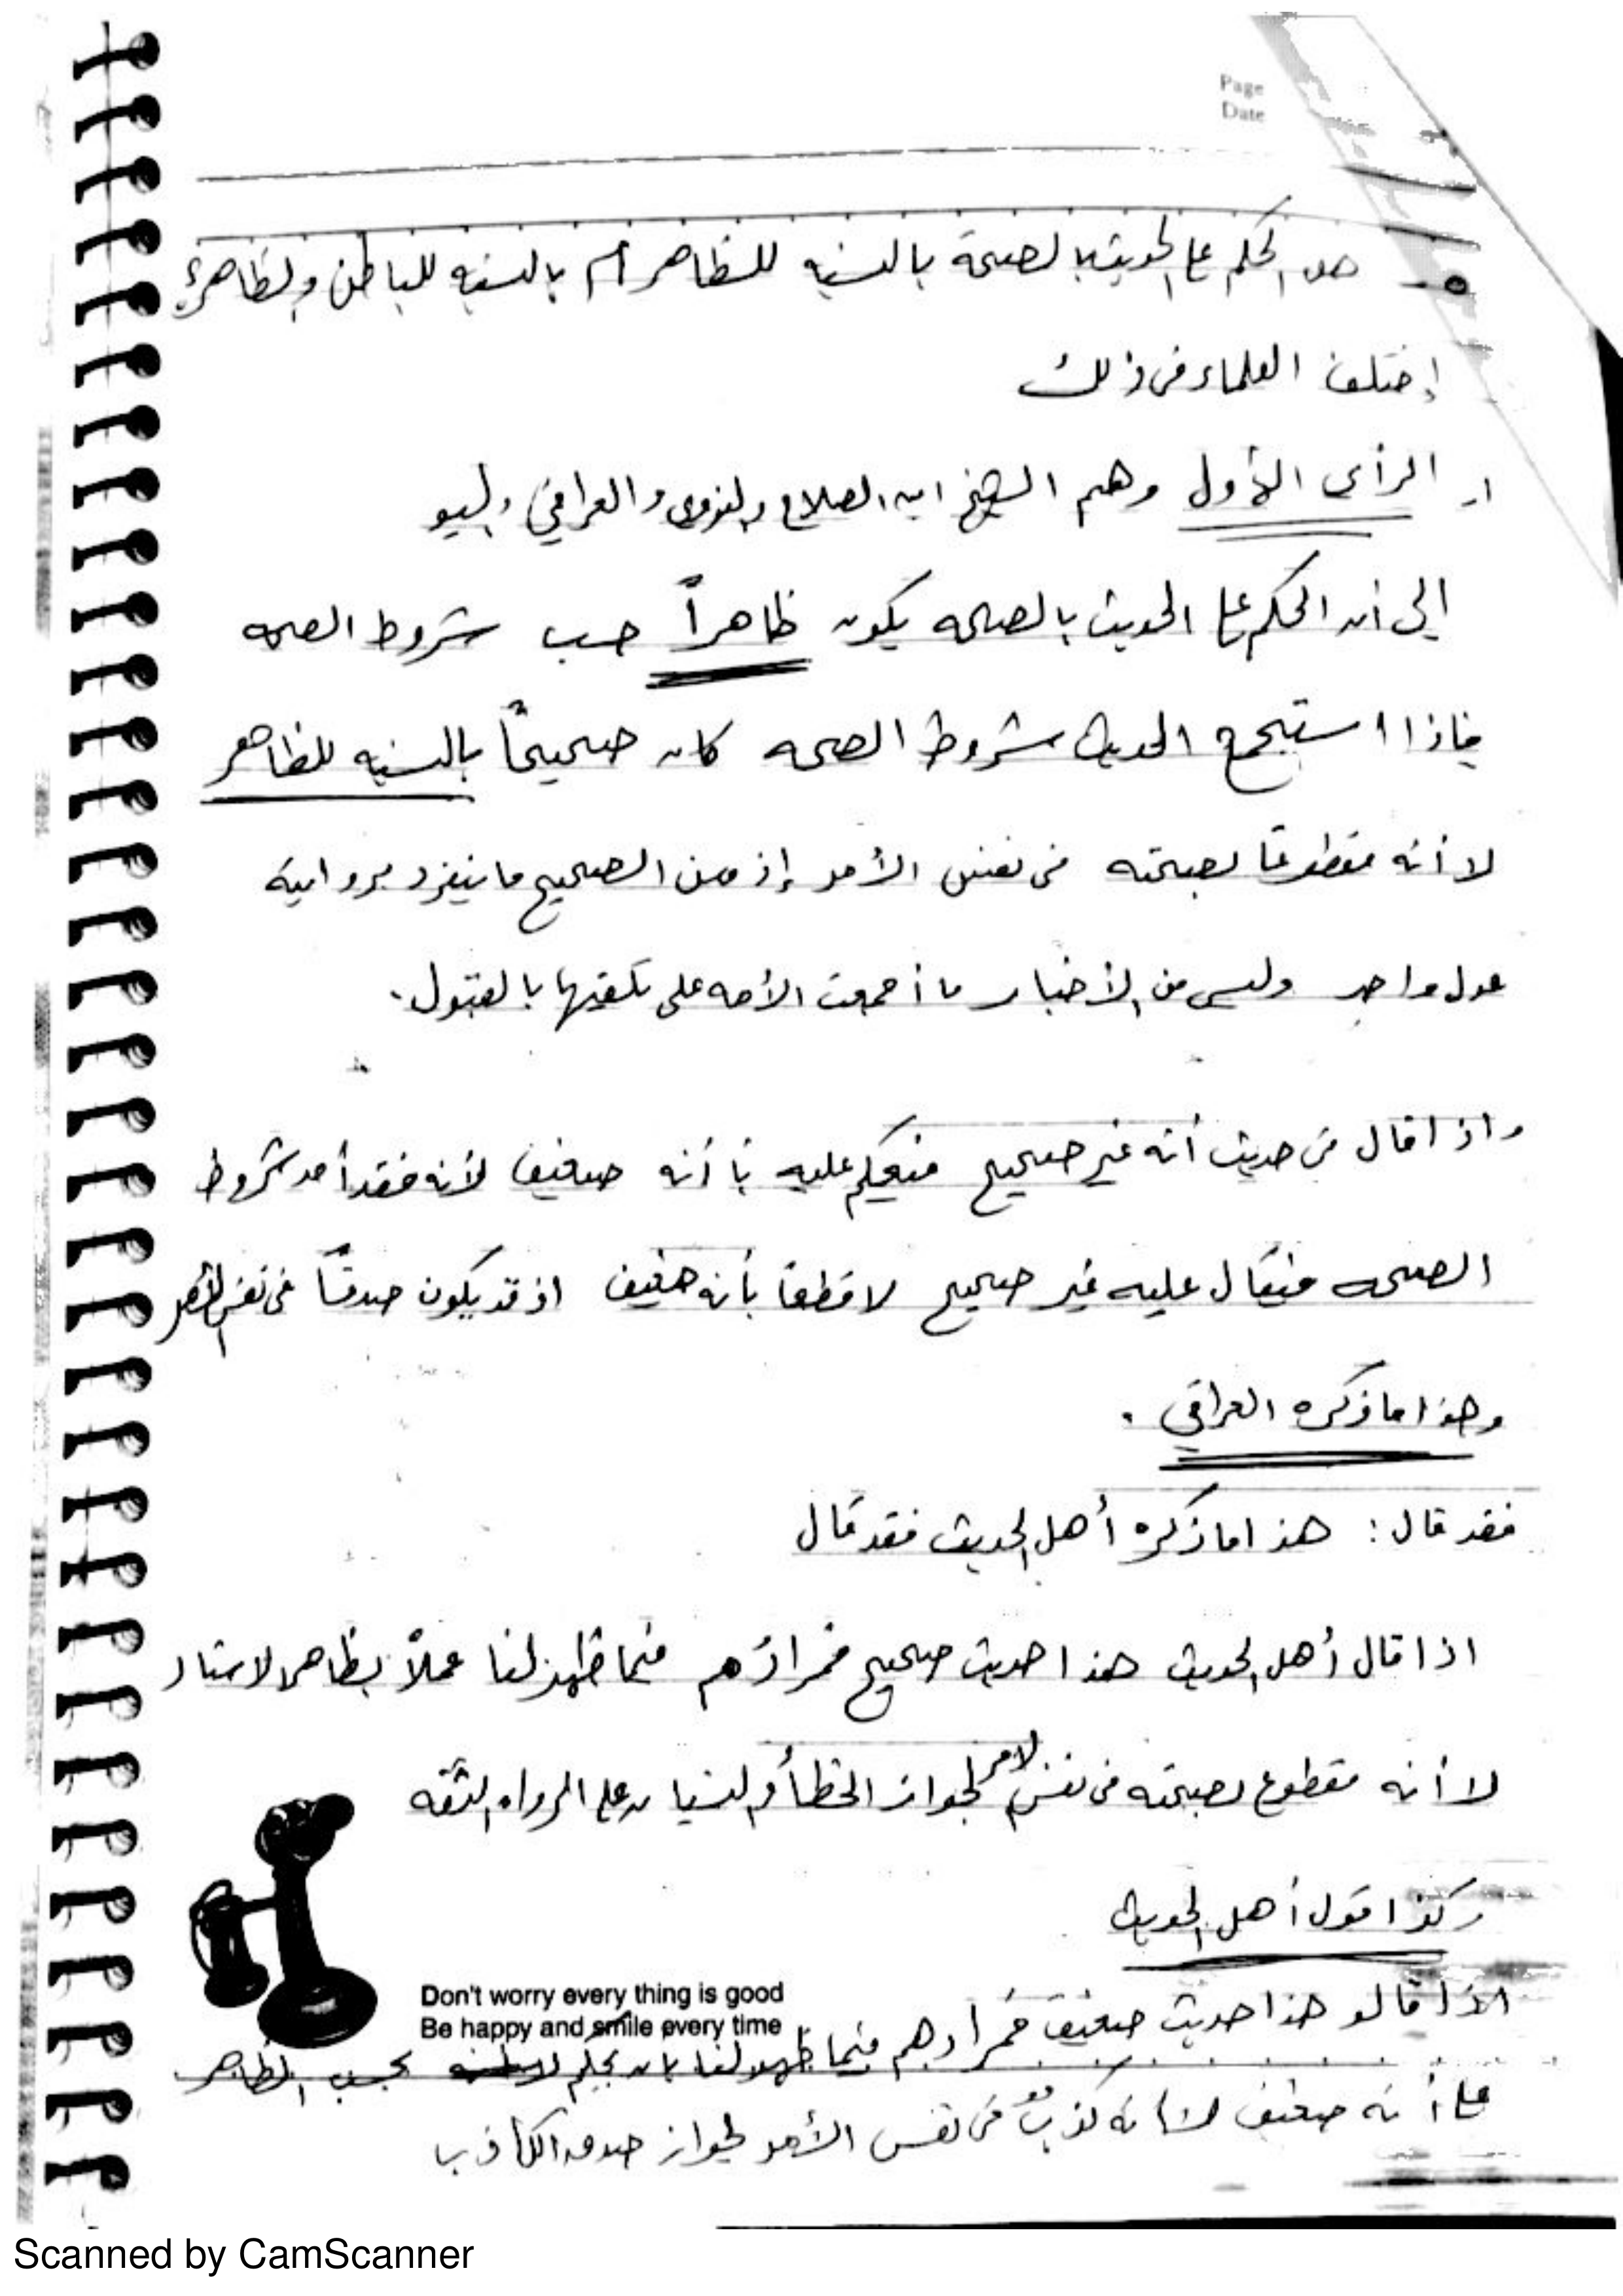 Page
Date
هل الحكم على الحديث بالصحة بالنسبه للظاهر أم بالنسبه للباطن والظاهر؟
إختلف العلماء فى ذلك
١ـ الرأى الأول وهم الشيخ ابن الصلاح والنووى والعراقي
إلى أن الحكم على الحديث بالصحه يكون ظاهراً حسب شروط الصحه
فإذا استجمع الحديث شروط الصحه كان صحيحاً بالنسبه للظاهر
لا أنه مقطوعا لصحته فى نفس الأمر إذ من الصحيح ما ينفرد بروايته
عدل واحد وليس من الأخبار ما أجمعت الأمه على تلقيها بالقبول.
واذا قال فى حديث أنه غير صحيح فيحكم عليه بأنه ضعيف لأنه فقد أحد شروط
الصحه فيقال عليه غير صحيح لا قطعا بأنه ضعيف اذ قد يكون صدقاً فى نفس الأمر
وهذا ما ذكره العراقي .
فقد قال : هذا ما ذكره أهل الحديث فقد قال
اذا قال أهل الحديث هذا حديث صحيح فمرادهم فيما ظهر لنا عملاً بظاهر الاسناد
لا أنه مقطوع لصحته فى نفس الامر لجواز الخطأ والنسيان على الرواه الثقه
وكذا قول أهل الحديث
اذا قالو هذا حديث ضعيف فمرادهم فيما ظهر لنا بان يحكم بحسب الظاهر
Don't worry every thing is good
Be happy and smile every time
على أنه ضعيف لا انه كذب فى نفس الأمر لجواز صدق الكاذب
Scanned by CamScanner